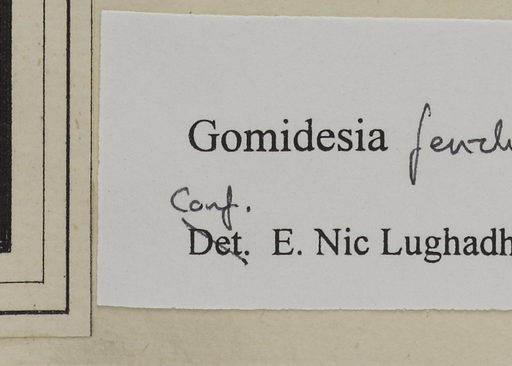 Gomidesia
Conf.
Det. E. Nic Lughadh